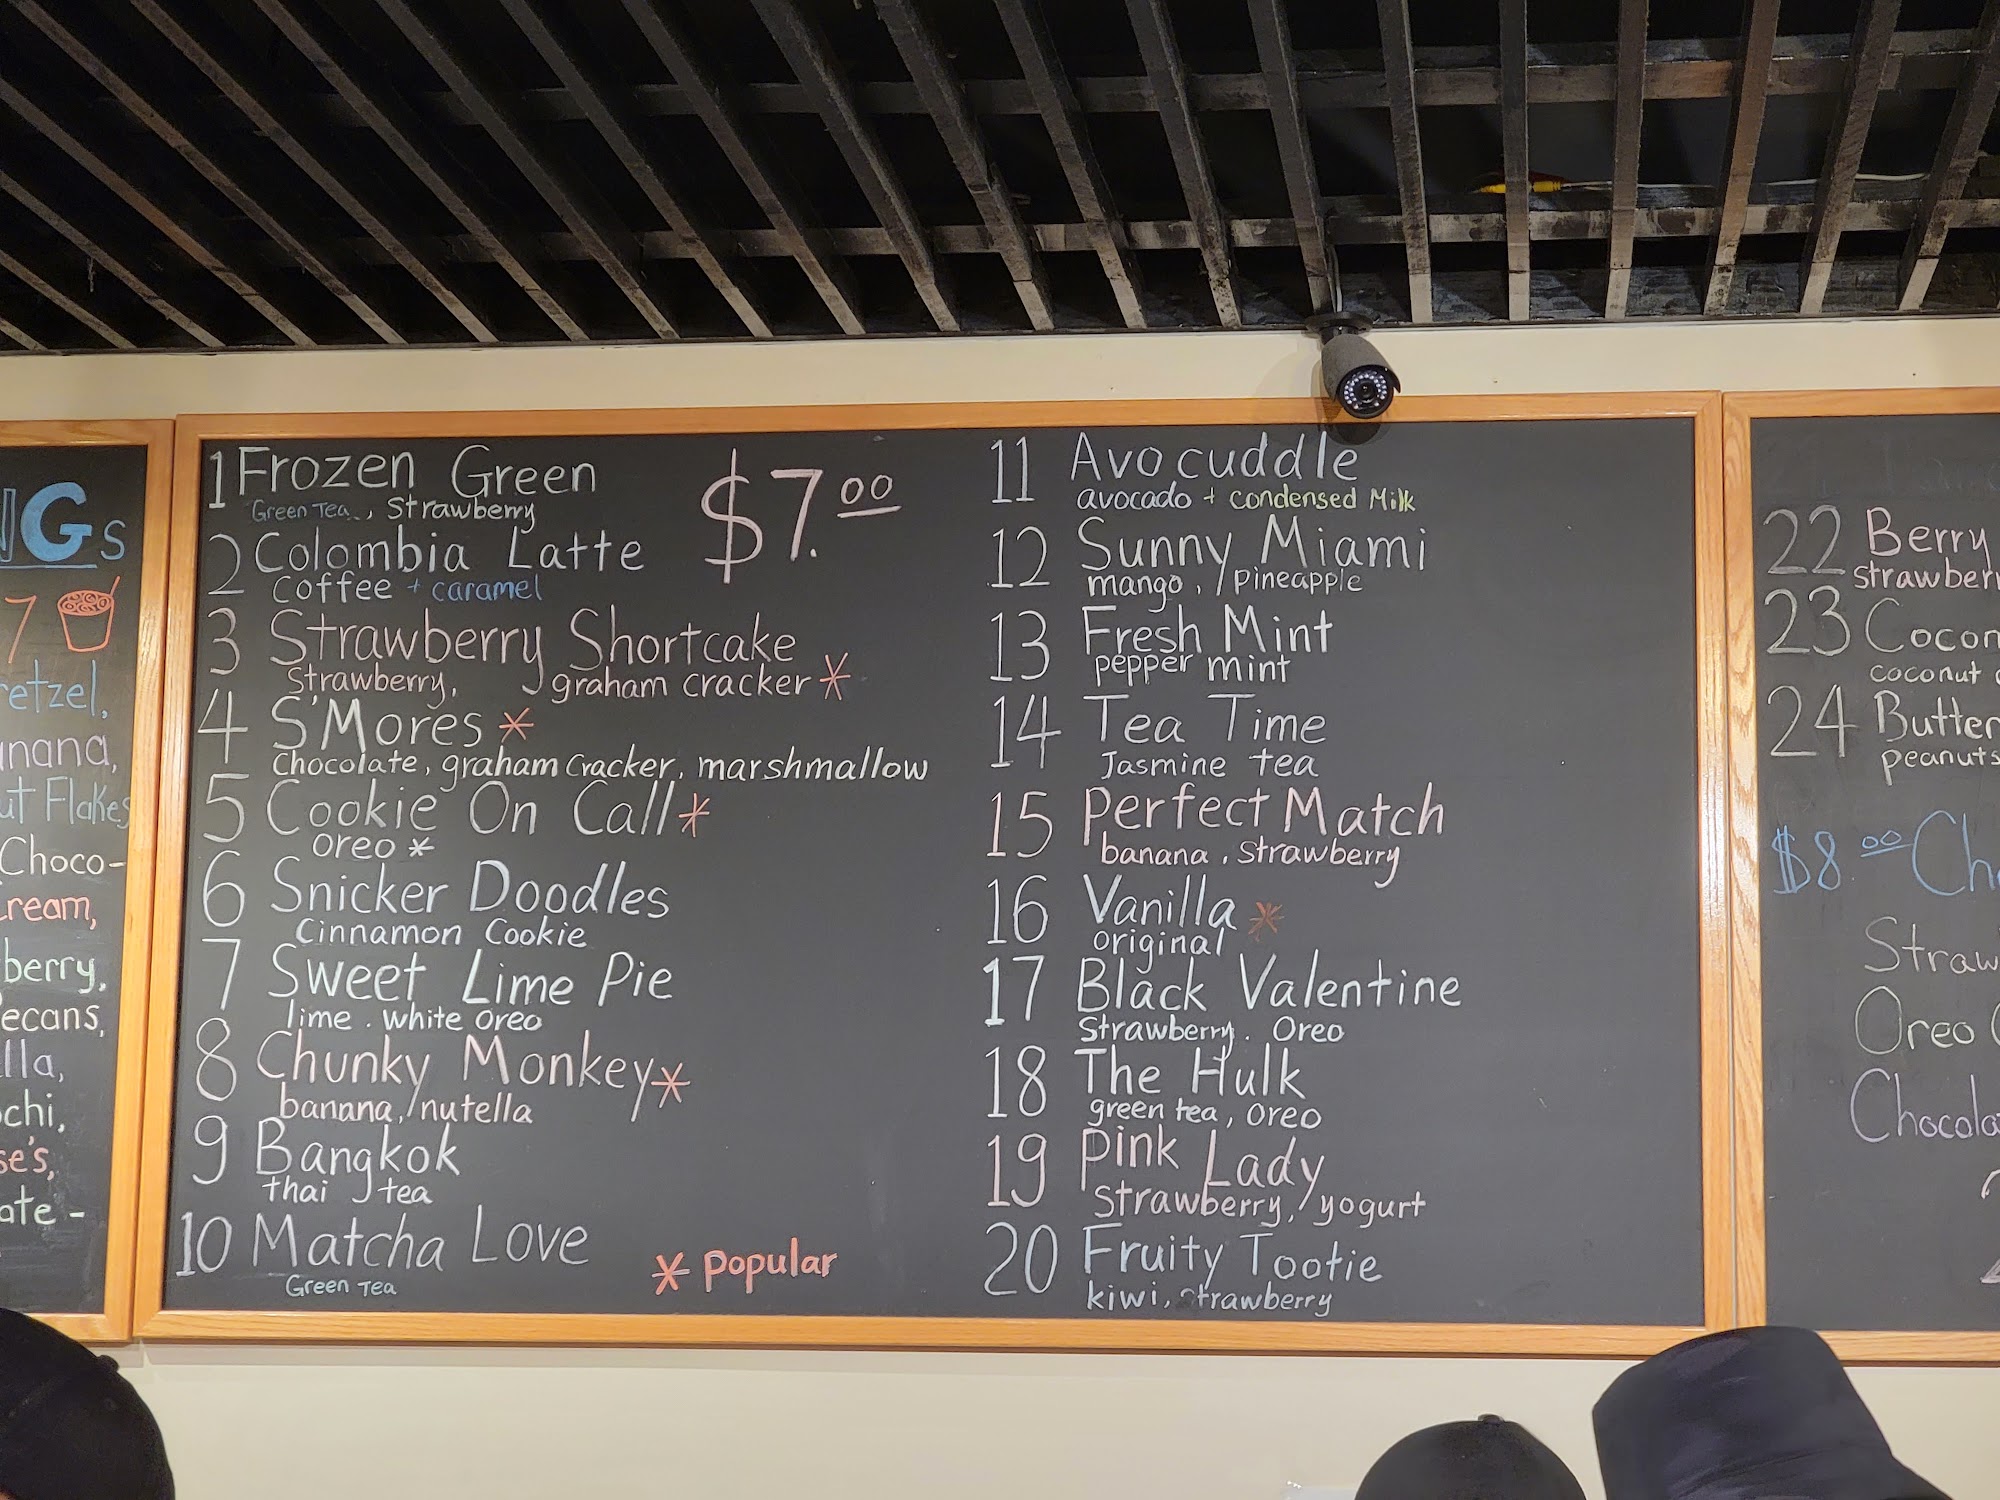 Gs
7
etzel,
nana,
ut Flakes
Choco-
ream,
berry,
ecans,
lla,
chi,
se's,
ate-
1 Frozen Green
Green Tea, Strawberry
$7.00
2 Colombia Latte
Coffee + caramel
3 Strawberry Shortcake
Strawberry, graham cracker *
4 S'Mores *
Chocolate, graham cracker, marshmallow
5 Cookie On Call *
oreo *
6 Snicker Doodles
Cinnamon Cookie
7 Sweet Lime Pie
lime. white oreo
8 Chunky Monkey *
banana, nutella
9 Bangkok
thai tea
10 Matcha Love
Green Tea
* Popular
11 Avocuddle
avocado + condensed Milk
12 Sunny Miami
mango, pineapple
13 Fresh Mint
pepper mint
14 Tea Time
Jasmine tea
15 Perfect Match
banana, strawberry
16 Vanilla *
original
17 Black Valentine
Strawberry. Oreo
18 The Hulk
green tea, oreo
19 Pink Lady
Strawberry, yogurt
20 Fruity Tootie
kiwi, strawberry
22 Berry
strawber
23 Cocon
coconut
24 Butter
peanuts
$8.00 Ch
Straw
Oreo
Chocola